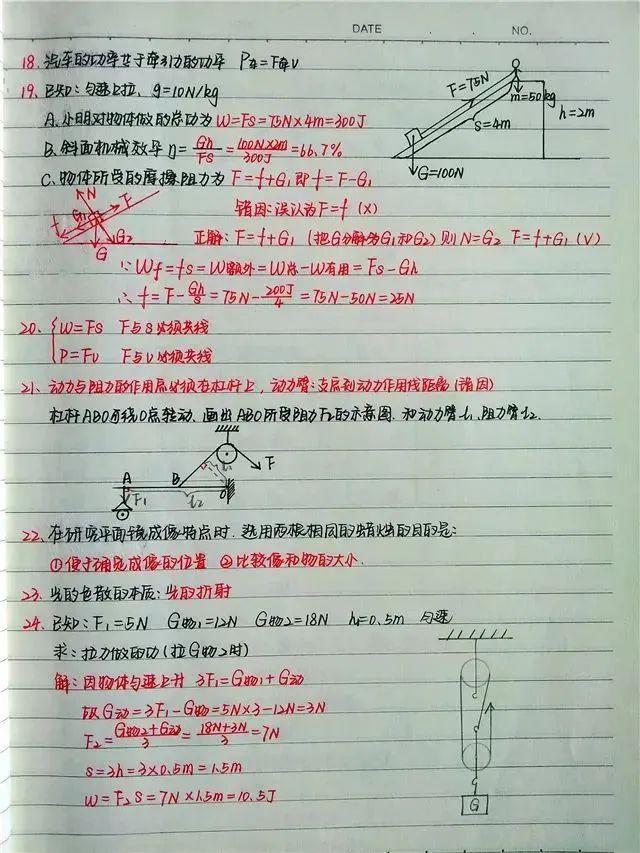 DATE NO.
18、汽车的功率等于牵引力的功率 P车=F牵V
19、已知:匀速上拉、g=10N/kg
F=75N
m=50kg
h=2m
s=4m
G=100N
A、小明对物体做的总功为 W=FS=75N×4m=300J
B、斜面机械效率η=Gh/FS=100N×2m/300J=66.7%
C、物体所受的摩擦阻力为 F=f+G₁即f=F-G₁
N F f G₁ G₂ G
错因:误认为F=f (X)
正解:F=f+G₁ (把G分解为G₁和G₂) 则N=G₂ F=f+G₁ (V)
∵Wf=fs=W额外=W总-W有用=Fs-Gh
∴f=F-Gh/s=75N-200J/4=75N-50N=25N
20、{W=Fs F与s必须共线
P=Fv F与v必须共线
21、动力与阻力的作用点必须在杠杆上,动力臂:支点到动力作用线距离(错因)
杠杆ABO可绕O点转动、画出ABO所受阻力F₂的示意图、和动力臂l₁、阻力臂l₂.
A B O F F₁ l₁ l₂
22、在研究平面镜成像特点时、选用两根相同的蜡烛的目的是:
①便于确定成像的位置 ②比较像和物的大小.
23、光的色散的本质:光的折射
24、已知:F₁=5N G物₁=12N G物2=18N h=0.5m 匀速
求:拉力做的功(拉G物2时)
解:因物体匀速上升 3F₁=G物₁+G动
故G动=3F₁-G物=5N×3-12N=3N
F₂=G物2+G动/3=18N+3N/3=7N
S=3h=3×0.5m=1.5m
W=F₂S=7N×1.5m=10.5J
G